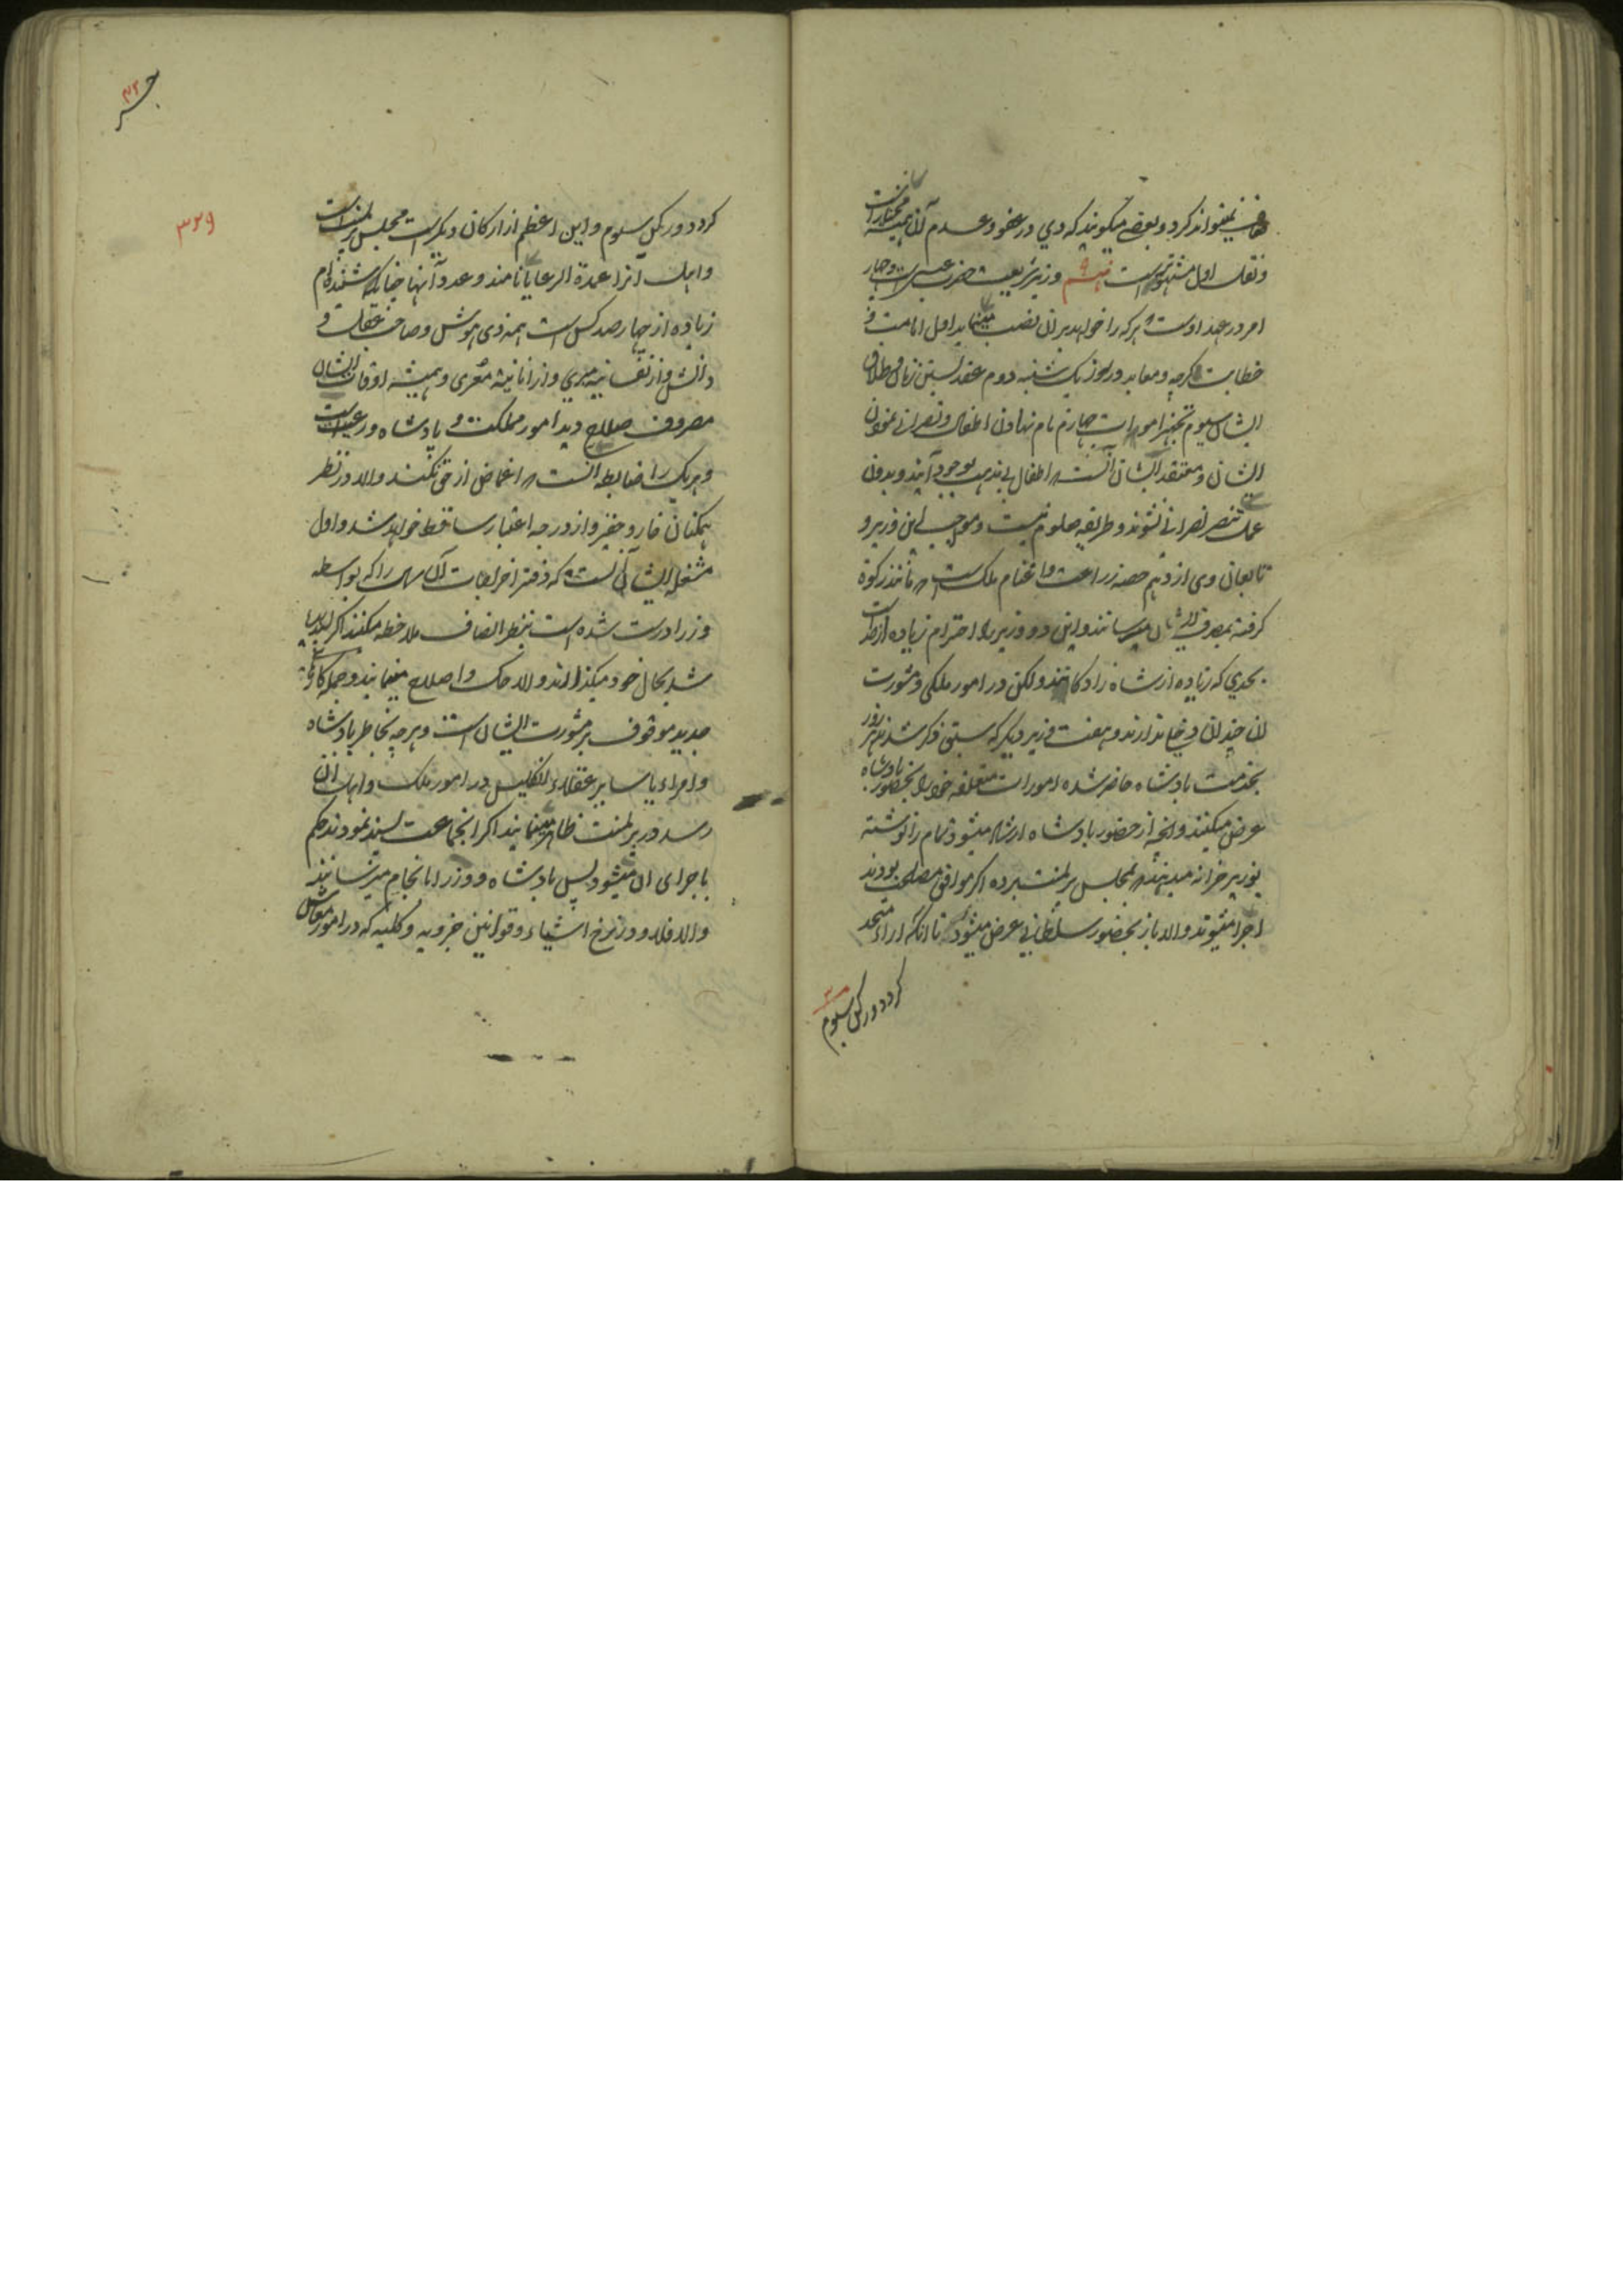 نمیتواند کرد و بعضی میکویند که وی در عفو و عدم آن همیشه مختار است
و نقل اول مشهورتر است هشتم وزیر شریعت حضرت عیسی است و چهار
امر در عهد اوست هرکه را خواهد بران نصب مینماید اول امامت و
خطابت کرجه و معابد در روز یک شنبه دوم عقد بستن زنان و طلاق
ایشان سیوم تجهیز اموات چهارم نام نهادن اطفال و نصرانی نمودن
ایشان و معتقد ایشان آنست که اطفال بی مذهب بوجود آیند و بدون
عمل تنصر نصرانی نشوند و طریقه معلوم نیست و مواجب این وزیر و
تابعان وی از دهم حصه زراعت و اغنام ملک است که مانند زکوة
کرفته بمصرف ایشان میرسانند و این دو وزیر را احترام زیاده از حد است
بحدی که زیاده از شاه زادکانند ولکن در امور ملکی و مشورت
ان چندان دخل ندارند و هفت وزیر دیکر که سبق ذکر شدند هر روز
بخدمت بادشاه حاضر شده امورات متعلقه خود را بحضور بادشاه
عرض میکنند و آنچه از حضور بادشاه ارشاد میشود تمام را نوشته
بوزیر خزانه میدهند که بمجلس پرلمنت برده اکر موافق مصلحت بودند
اجرا میشوند والا باز بحضور سلطانی عرض میشود تا انکه اراء متحد
کردد و رکن سیوم
۳۲۹
کردد و رکن سیوم و این اعظم از ارکان دیکر است مجلس پرلمنت است
و اهل آنرا عمدة الرعایا نامند و عدد آنها چنانکه شنیده ام
زیاده از چهار صد کس است همه ذی هوش و صاحب عقل و
دانش و از نفسانیه مبری و از انانیه معری و همیشه اوقات ایشان
مصروف صلاح دید امور مملکت و پادشاه و رعیت است
و هر یک را ضابطه آنست که اغماض از حق نکنند والا در نظر
همکنان خار و حقیر و از درجه اعتبار ساقط خواهد شد و اول
مشغله ایشان آنست که دفتر اخراجات آن سال را که بواسطه
وزرا درست شده است بنظر انصاف ملاحظه میکنند اکر
شد بحال خود میکذارند والا حک و اصلاح مینمایند و جمله کارهای
جدید موقوف بر مشورت ایشان است و هرچه بخاطر بادشاه
و امراء یا سایر عقلاء انکلیس در امور ملک و اهل ان
رسد در پرلمنت ظاهر مینمایند اکر انجماعت پسند نمودند حکم
باجرای ان میشود پس بادشاه و وزرا بانجام میرسانند
والا فلا و در نرخ اشیاء و قوانین جزویه و کلیه که در امور معاش